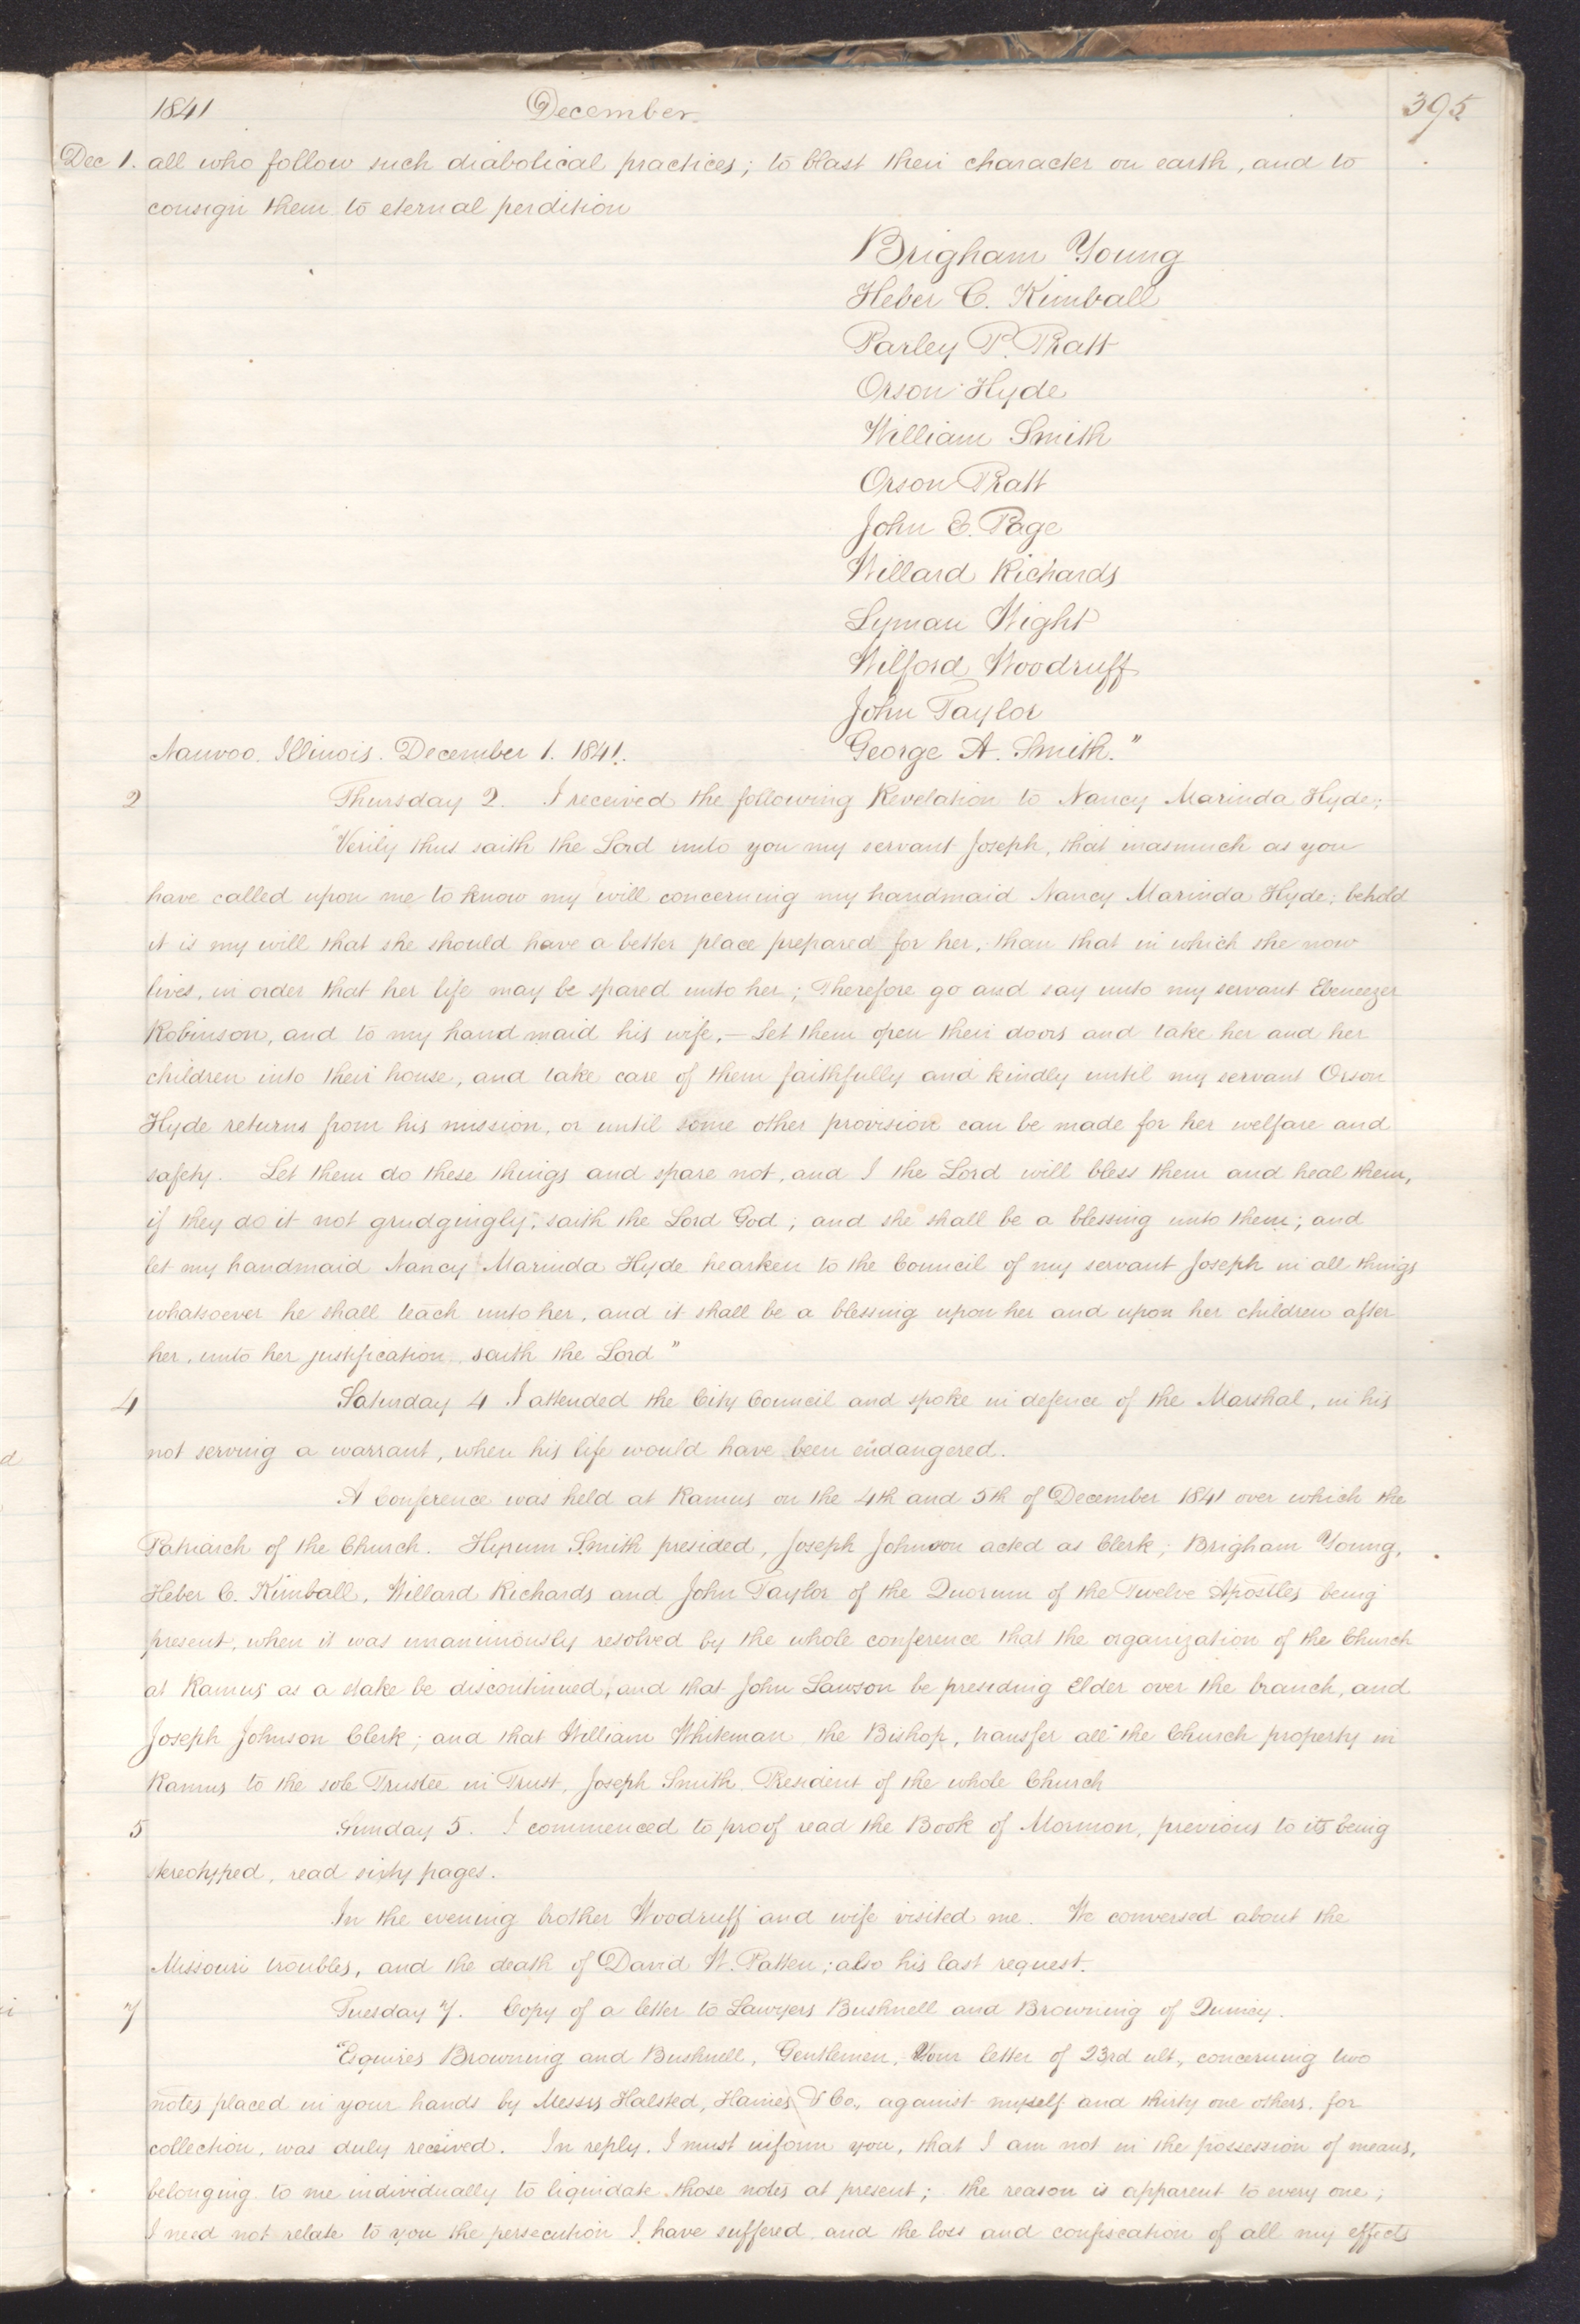 1841 December. 395
Dec 1. all who follow such diabolical practices; to blast their character on earth, and to
consign them to eternal perdition
Brigham Young
Heber C. Kimball
Parley P. Pratt
Orson Hyde
William Smith
Orson Pratt
John E. Page
Willard Richards
Lyman Wight
Wilford Woodruff
John Taylor
Nauvoo. Illinois. December 1. 1841. George A. Smith."
2 Thursday 2. I received the following Revelation to Nancy Marinda Hyde;
"Verily thus saith the Lord unto you my servant Joseph, that inasmuch as you
have called upon me to know my will concerning my handmaid Nancy Marinda Hyde; behold
it is my will that she should have a better place prepared for her, than that in which she now
lives, in order that her life may be spared unto her; Therefore go and say unto my servant Ebeneezer
Robinson, and to my hand maid his wife, — Let them open their doors and take her and her
children into their house, and take care of them faithfully and kindly until my servant Orson
Hyde returns from his mission, or until some other provision can be made for her welfare and
safety. Let them do these things and spare not, and I the Lord will bless them and heal them,
if they do it not grudgingly, saith the Lord God; and she shall be a blessing unto them; and
let my handmaid Nancy Marinda Hyde hearken to the Council of my servant Joseph in all things
whatsoever he shall teach unto her, and it shall be a blessing upon her and upon her children after
her, unto her justification saith the Lord"
4 Saturday 4 I attended the City Council and spoke in defence of the Marshal, in his
not serving a warrant, when his life would have been endangered.
A Conference was held at Ramus on the 4th and 5th of December 1841 over which the
Patriarch of the Church. Hyrum Smith presided, Joseph Johnson acted as Clerk; Brigham Young,
Heber C. Kimball, Willard Richards and John Taylor of the Quorum of the Twelve Apostles being
present, when it was unanimously resolved by the whole conference that the organization of the Church
at Ramus as a stake be discontinued, and that John Lawson be presiding Elder over the branch, and
Joseph Johnson Clerk; and that William Whiteman the Bishop, transfer all the Church property in
Ramus to the sole Trustee in Trust, Joseph Smith. President of the whole Church
5 Sunday 5. I commenced to proof read the Book of Mormon, previous to its being
stereotyped, read sixty pages.
In the evening brother Woodruff and wife visited me. We conversed about the
Missouri troubles, and the death of David W. Patten; also his last request.
7 Tuesday 7. Copy of a letter to Lawyers Bushnell and Browning of Quincy.
"Esquires Browning and Bushnell, Gentlemen, Your letter of 23rd ult., concerning two
notes placed in your hands by Messrs Halsted, Haines & Co., against myself and thirty one others, for
collection, was duly received. In reply, I must inform you, that I am not in the possession of means,
belonging to me individually to liquidate those notes at present; the reason is apparent to every one;
I need not relate to you the persecution I have suffered and the loss and confiscation of all my effects